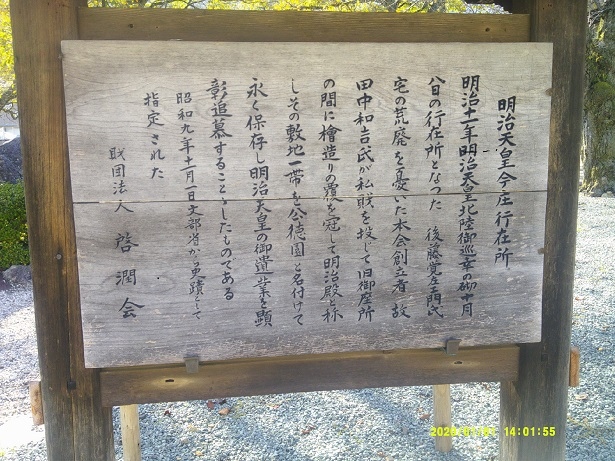 明治天皇今庄行在所
明治十一年明治天皇北陸御巡幸の御十月
八日の行在所となった 後藤覚左ヱ門氏
宅の荒廃を憂いた本会創立者 故
田中和吉氏が私財を投じて旧御座所
の間に檜造りの覆を冠して明治殿と称
しその敷地一帯を公徳園と名付けて
永く保存し明治天皇の御遺業を顕
彰追慕することゝしたものである
昭和九年十一月一日文部省から史蹟として
指定された
財団法人 啓潤会
14:01:55